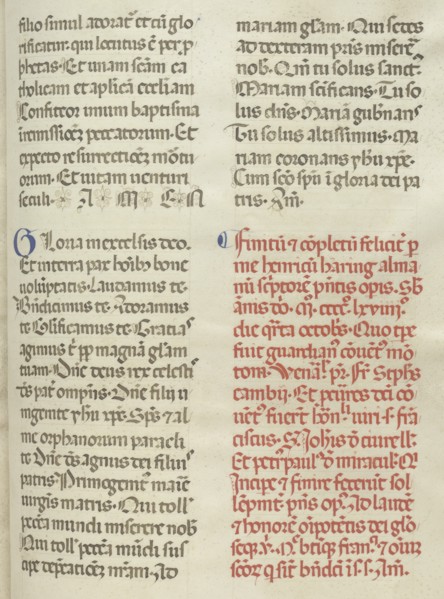 filio simul adorat᷑ et cū glo
rificatur. qui locutus ē per ꝓ
phetas. Et unam scām ca
tholicam et aplicā eccliam
Confiteor unum baptisma
in remissionē peccatorum. Et
expecto resurrectionē mortu
orum. Et vitam venturi
seculi. A M E N
Gloria in excelsis deo.
Et in terra pax hoībꝫ bone
voluptatis. Laudamus te
Bn̄dicimus te. Adoramus
te Glificamus te. Gratias
agimus t̄ ꝓp magnā glam
tuam. Dn̄e deus rex celestis
ds pat̄ omp̄ns. Dn̄e fili u
nigenite yhu xpe. Sps ⁊ al
me orphanorum paracli
te Dn̄e ds agnus dei filius
patris. Primogenit᷒ marie
virgīs matris. Qui toll᷒
pccā mundi miserere nob᷒
Qui toll᷒ peccā mūdi sus
cipe dep̄cationē nr̄am. Ad
mariam glam. Qui sedes
ad dexteram pris miserere
nob᷒. Qm̄ tu solus sanct᷒.
Mariam scificans. Tu so
lus dn̄s. Mariā gubn̄ans
Tu solus altissimus. Ma
riam coronans yhu xpe.
Cum sco spu ī gloria dei pa
tris. Am̄.
Finitū ⁊ cōpletū felicit᷑ ꝑ
me henricū haring alma
nū sc̄ptorē p̄ntis opis. Sb̄
annis dō. M. cccc. lxviiij.
die qrta octobs. Quo tpe
fuit guardian᷒ cōuēt᷒ mō
tom. Venāl᷒. pr. Fr̄ Stephs
cambij. Et priores dei cō
uēt᷒ fuerūt bōn᷒ viri s. frā
ciscus. S. Johīs d᷒ ciurell᷒.
Et petr᷒ paul᷒ d᷒ miracul᷒. Qi
Incipe ⁊ finire fecerūt sol
lēpnit᷑ p̄ns op᷒. Ad laudē
⁊ honorē oīpotētis dei glo
seqꝫ v. M. btiqꝫ fran᷒. ⁊ oīuꝫ
scoꝝ q sīt bn̄dcti ī s. s. Am̄.